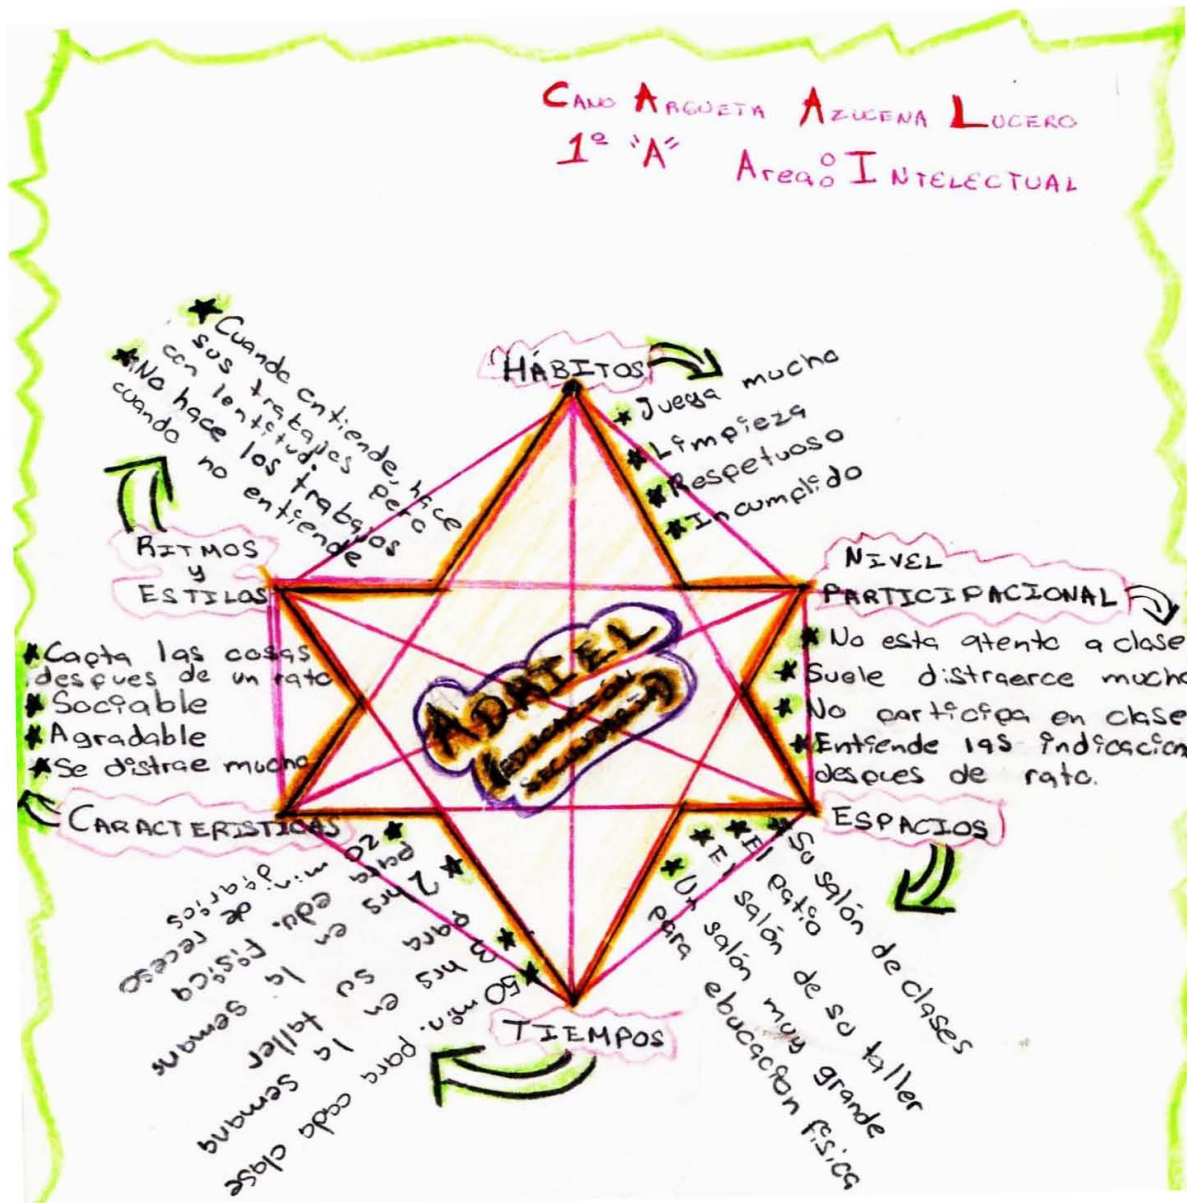 CANO ARGUETA AZUCENA LUCERO
1º "A" Area: INTELECTUAL
HÁBITOS
★ Juega mucho
★ Limpieza
★ Respetuoso
★ Incumplido
NIVEL
PARTICIPACIONAL
★ No esta atento a clase
★ Suele distraerce mucho
★ No participa en clase
★ Entiende las indicacion
despues de rato.
ESPACIOS
★ Su salón de clases
★ El patio
★ El salón de su taller
★ Un salón muy grande
para ebucación física
TIEMPOS
★ 50 min. para cada clase
★ 3 hrs en la semana
para su taller
★ 2 hrs en la semana
para edu. física
★ 20 min. de receso
diarios
CARACTERISTICAS
★ Capta las cosas
despues de un rato
★ Sociable
★ Agradable
★ Se distrae mucho
RITMOS
y
ESTILOS
★ Cuando entiende, hace
sus trabajos pero
con lentitud.
★ No hace los trabajos
cuando no entiende
ADAIEL
(EDUCACIÓN
SECUNDARIA)